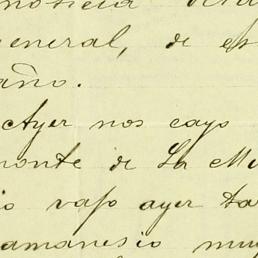 noticia
general, de es
año.
Ayer nos cayo
monte de La Mu
io vapo ayer ta
amanesio muy